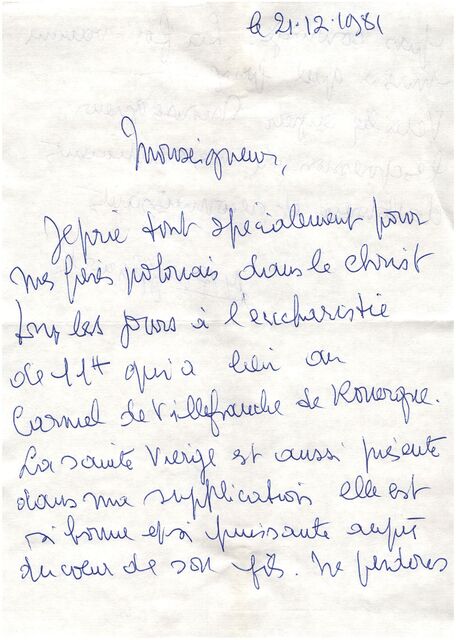 le 21.12.1981
Monseigneur,
Je prie tout spécialement pour
mes frères polonais dans le Christ
tous les jours à l'eucharistie
de 11H qui a lieu au
Carmel de Villefranche de Rouergue.
La sainte Vierge est aussi présente
dans ma supplication elle est
si bonne et si puissante auprès
du cœur de son fils. Ne perdons